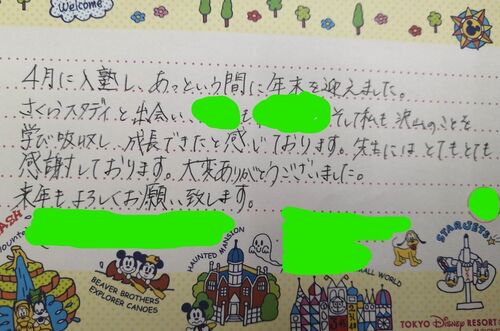 Welcome
4月に入塾し、あっという間に年末を迎えました。
さくらスタディと出会い、も、そして私も沢山のことを
学び吸収し、成長できたと感じております。先生にはとてもとても
感謝しております。大変ありがとうございました。
来年もよろしくお願い致します。
BEAVER BROTHERS
EXPLORER CANOES
HAUNTED MANSION
SMALL WORLD
STARJETS
TOKYO Disney RESORT